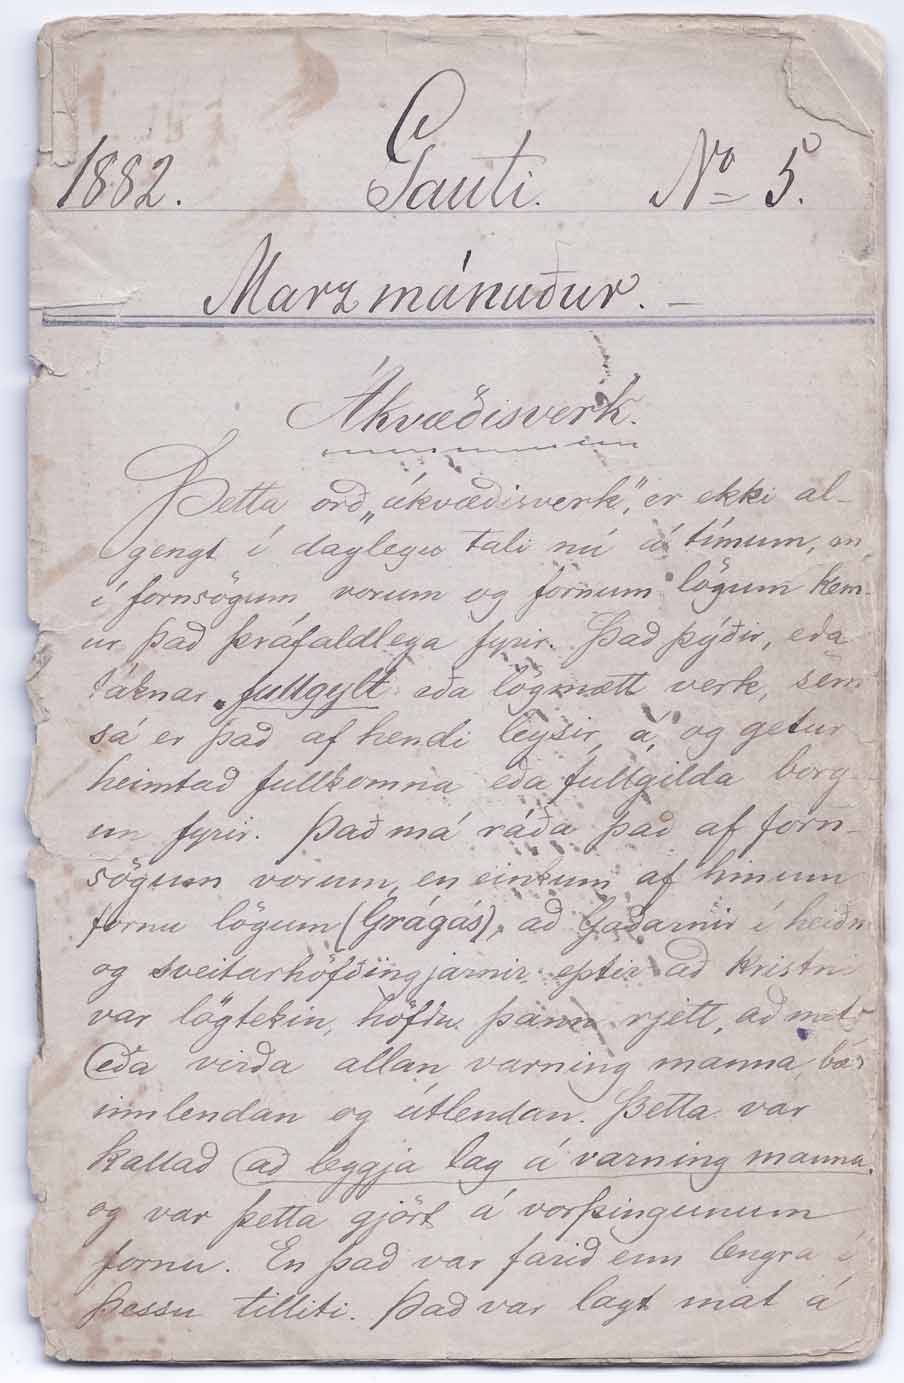 1882. Gauti. No 5.
Marz mánuður. –
Ákvæðisverk.
Þetta orð „ákvæðisverk", er ekki al-
gengt í daglegu tali nú á tímum, en
í fornsögum vorum og fornum lögum kem-
ur það þráfaldlega fyrir. Það þýðir, eða
táknar fullgylt eða lögmætt verk, sem
sá er það af hendi leysir, á, og getur
heimtað fullkomna eða fullgilda borg-
un fyrir. Það má ráða það af forn-
sögum vorum, en einkum af hinum
fornu lögum (Grágás), að Goðarnir í heiðni
og sveitarhöfðingjarnir eptir að kristni
var lögtekin, höfðu þann rjett, að meta
eða virða allan varning manna, bæði
innlendan og útlendan. Þetta var
kallað að leggja lag á varning manna.
og var þetta gjört á vorþingunum
fornu. En það var farið enn lengra í
þessu tilliti. Það var lagt mat á